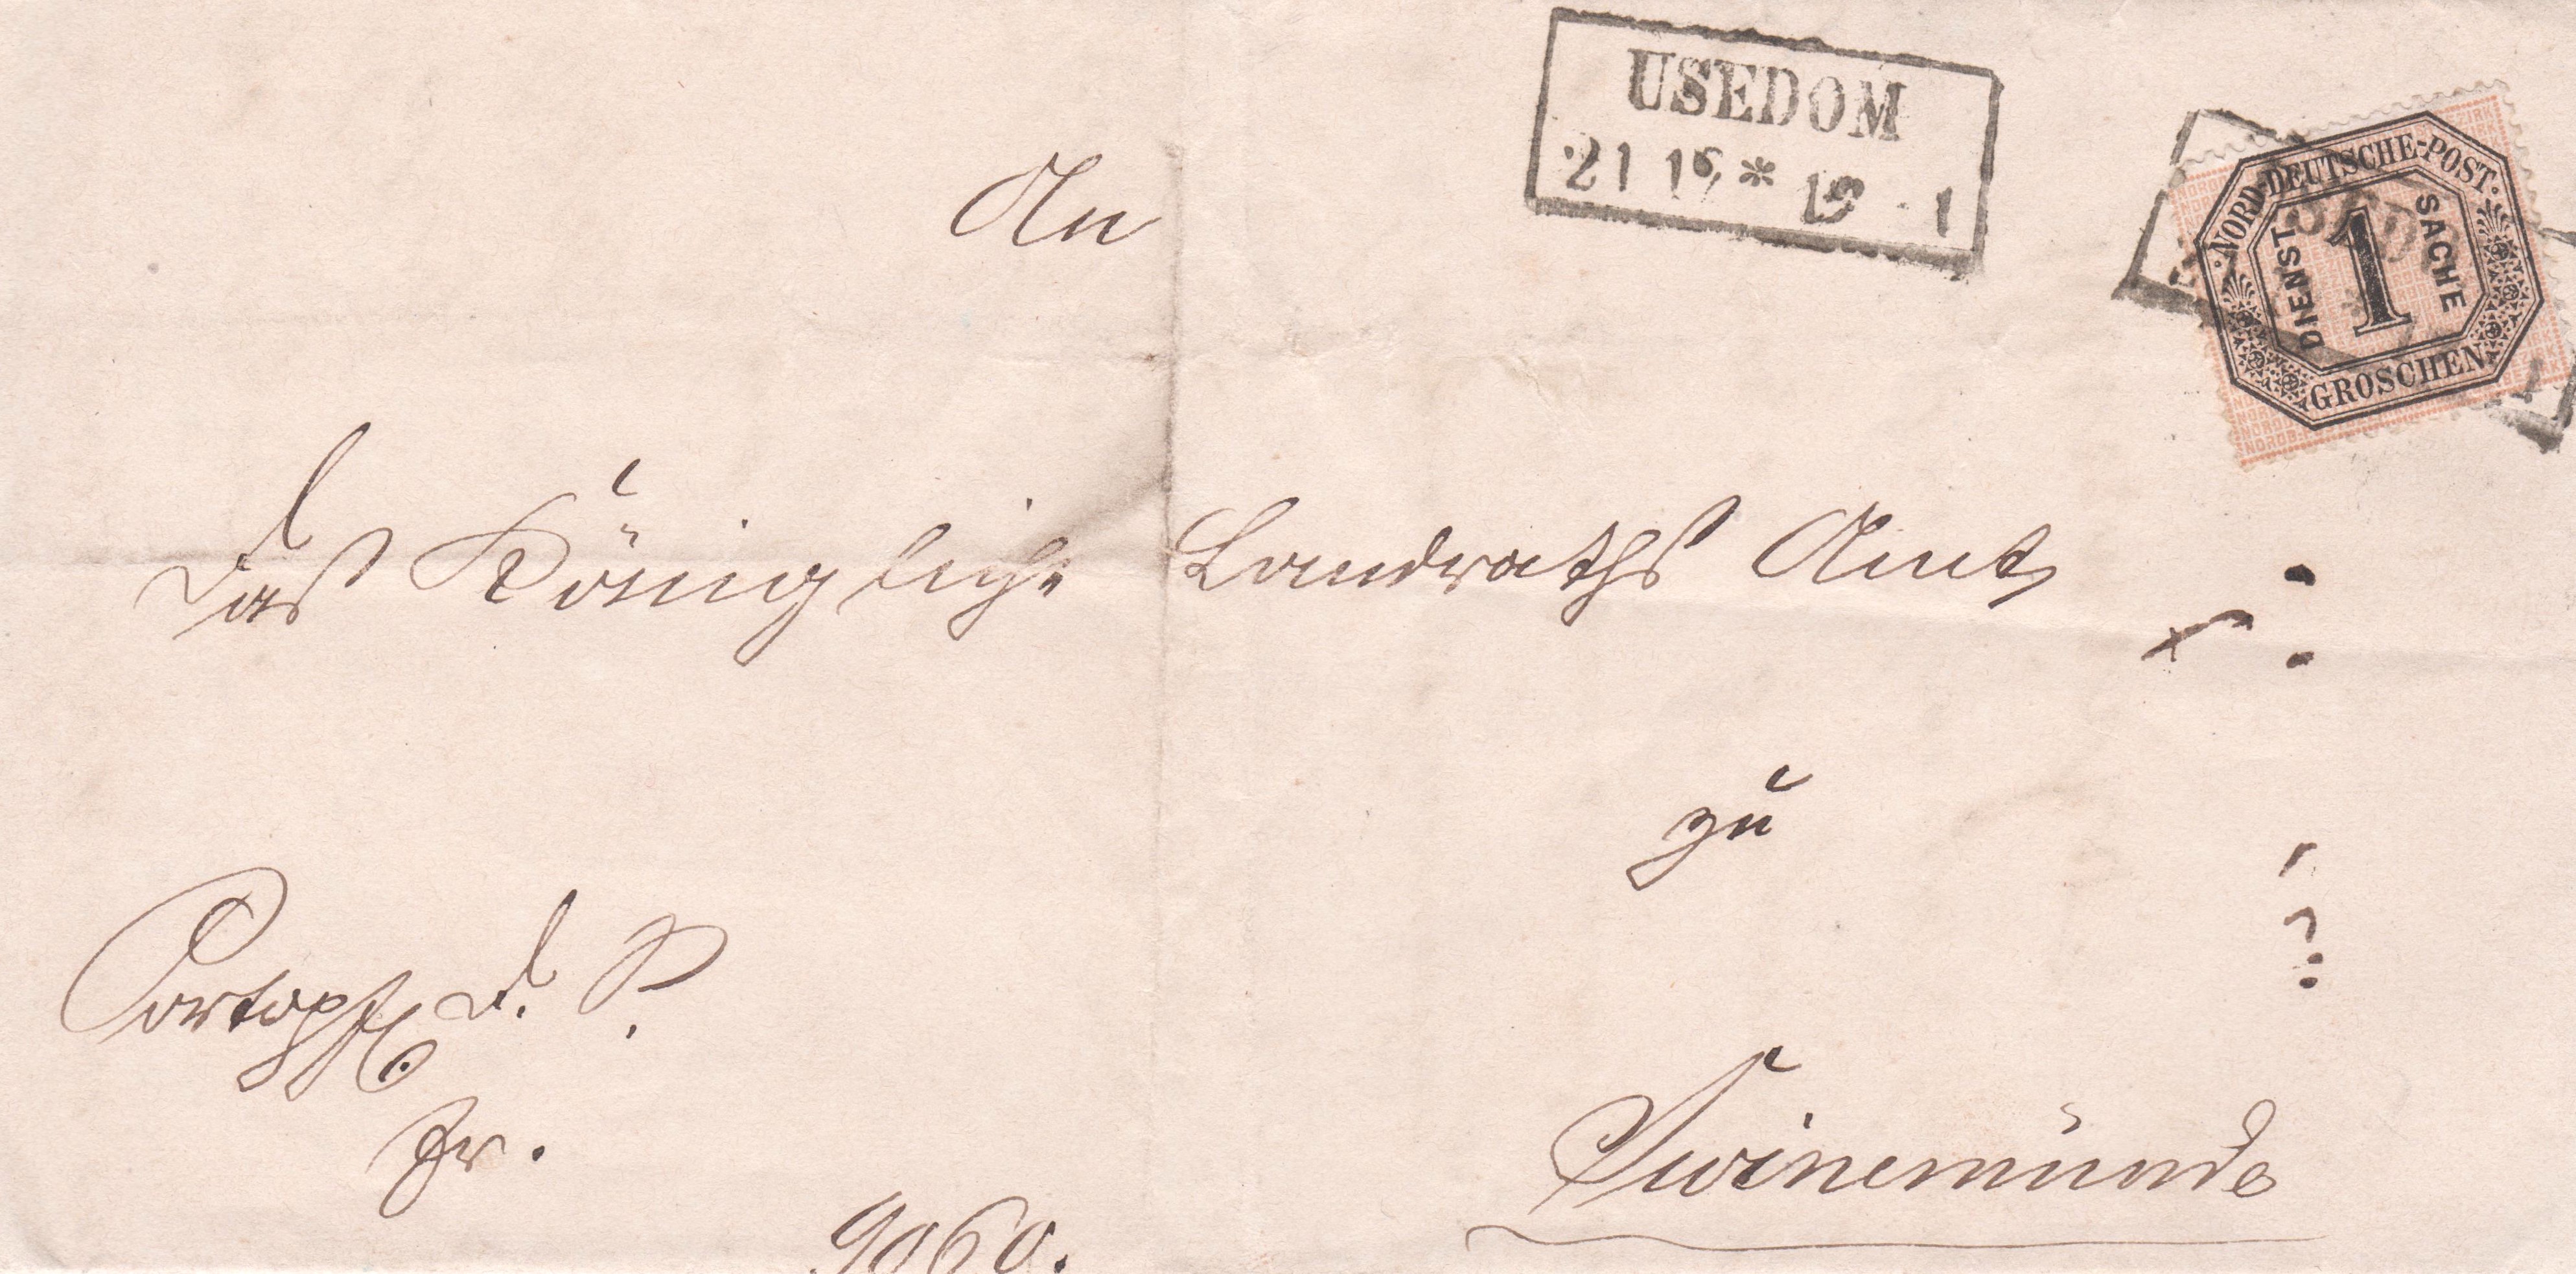 USEDOM
21 * 1
NORD-DEUTSCHE-POST
DIENST SACHE
1
GROSCHEN
An
das Königliche Landraths Amt
zu
Swinemünde
Portopfl. d. S.
Fr.
9060.